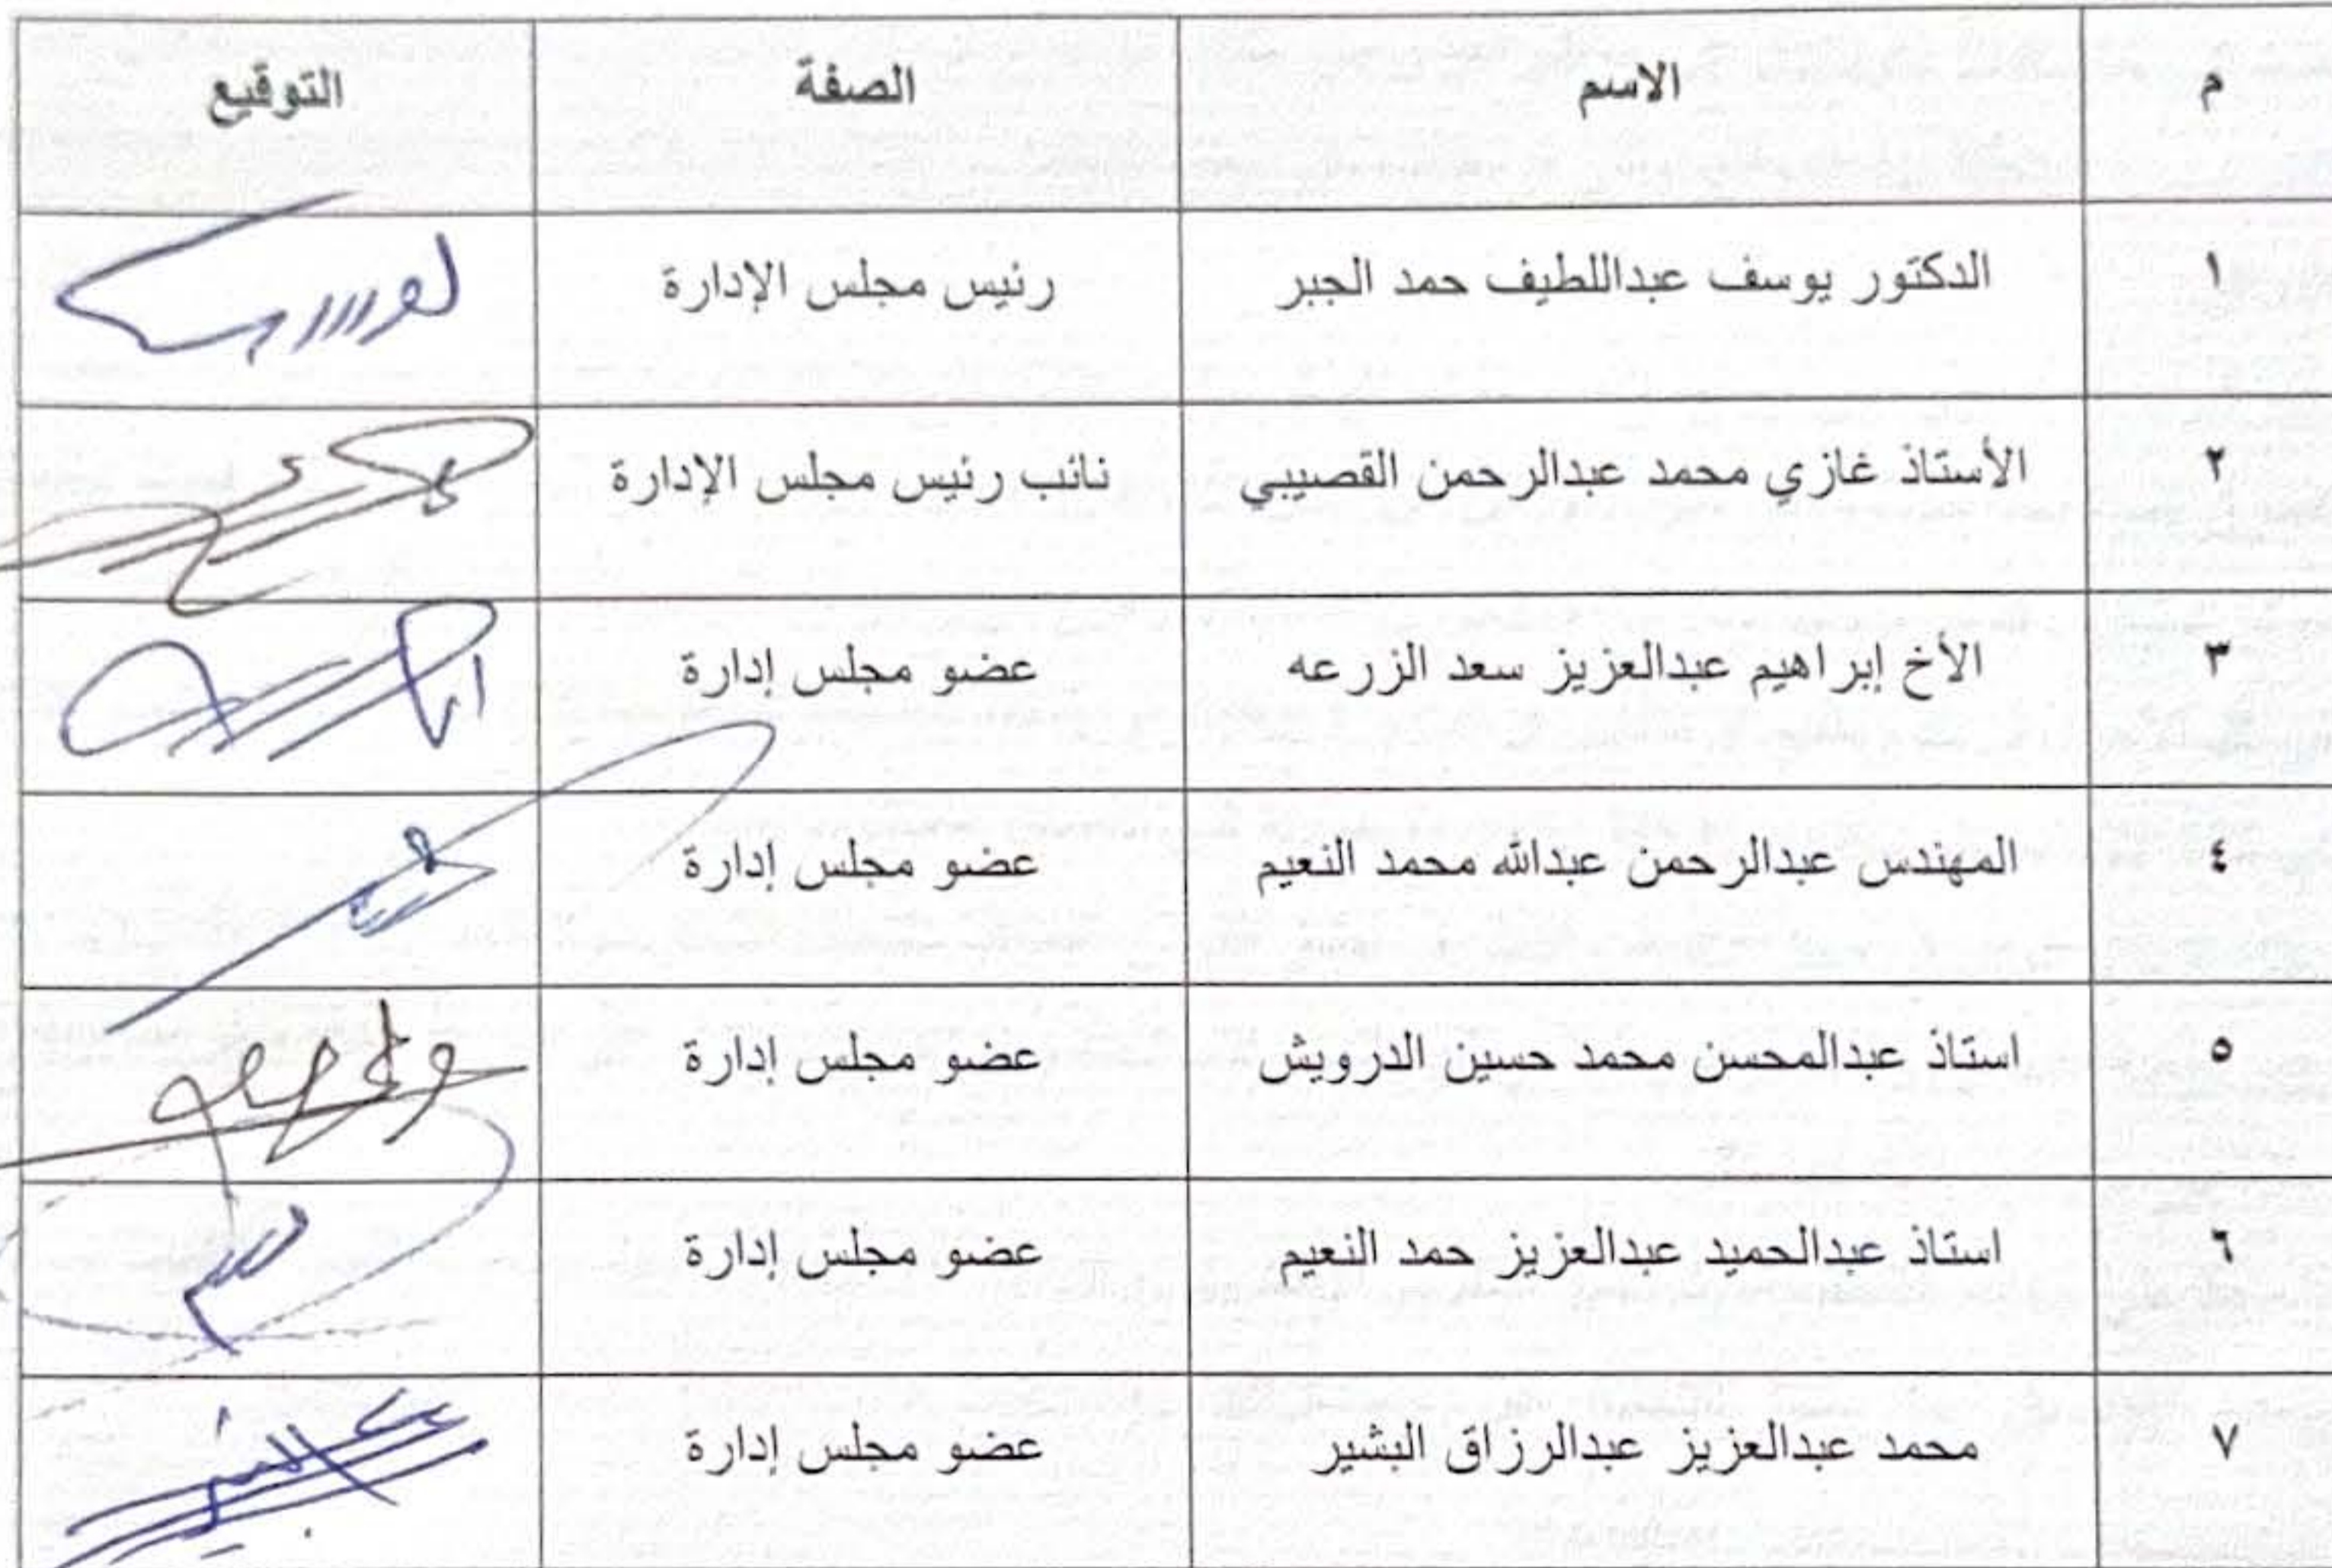 م الاسم الصفة التوقيع
١ الدكتور يوسف عبداللطيف حمد الجبر رئيس مجلس الإدارة
٢ الأستاذ غازي محمد عبدالرحمن القصيبي نائب رئيس مجلس الإدارة
٣ الأخ إبراهيم عبدالعزيز سعد الزرعه عضو مجلس إدارة
٤ المهندس عبدالرحمن عبدالله محمد النعيم عضو مجلس إدارة
٥ استاذ عبدالمحسن محمد حسين الدرويش عضو مجلس إدارة
٦ استاذ عبدالحميد عبدالعزيز حمد النعيم عضو مجلس إدارة
٧ محمد عبدالعزيز عبدالرزاق البشير عضو مجلس إدارة